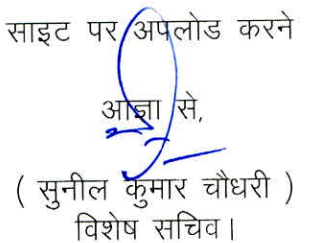 साइट पर अपलोड करने
आज्ञा से,
( सुनील कुमार चौधरी )
विशेष सचिव।